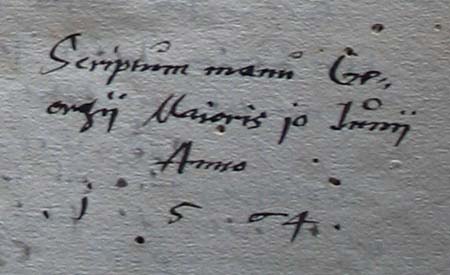 Scriptům manů Ge:,
orgij Maioris jo Iůnij
Anno
. j 5 6 4 .